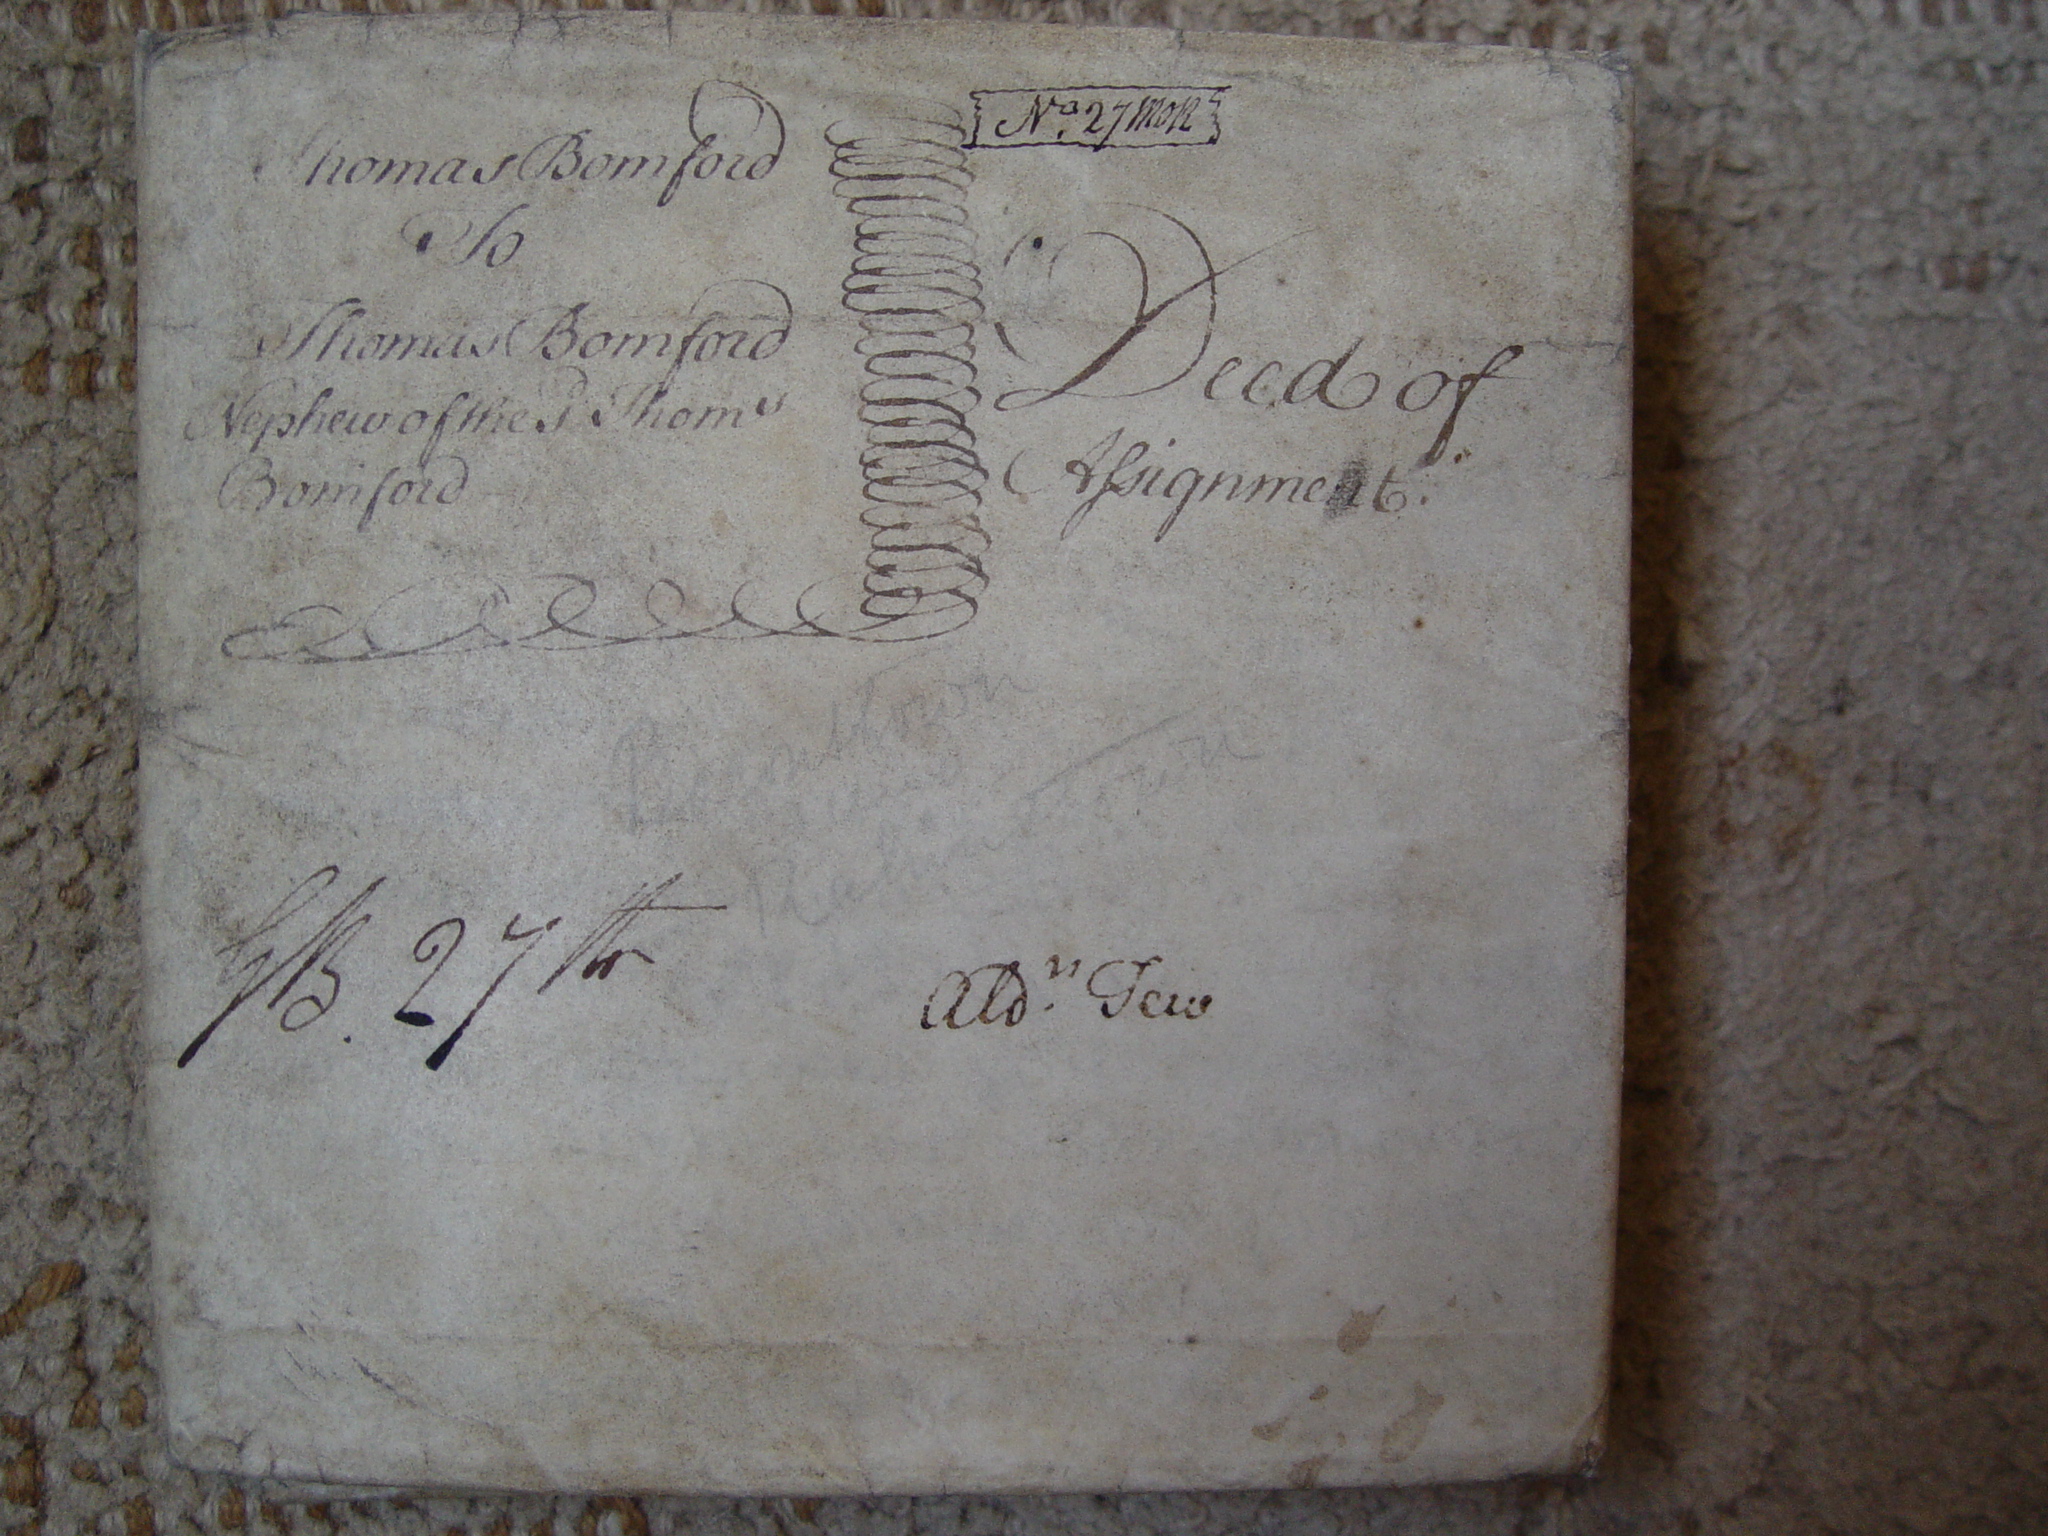 Thomas Bomford
To
Thomas Bomford
Nephew of the sd Thoms
Bomford
No. 27 MOR
Deed of
Assignment.
27th
Aldn Tew